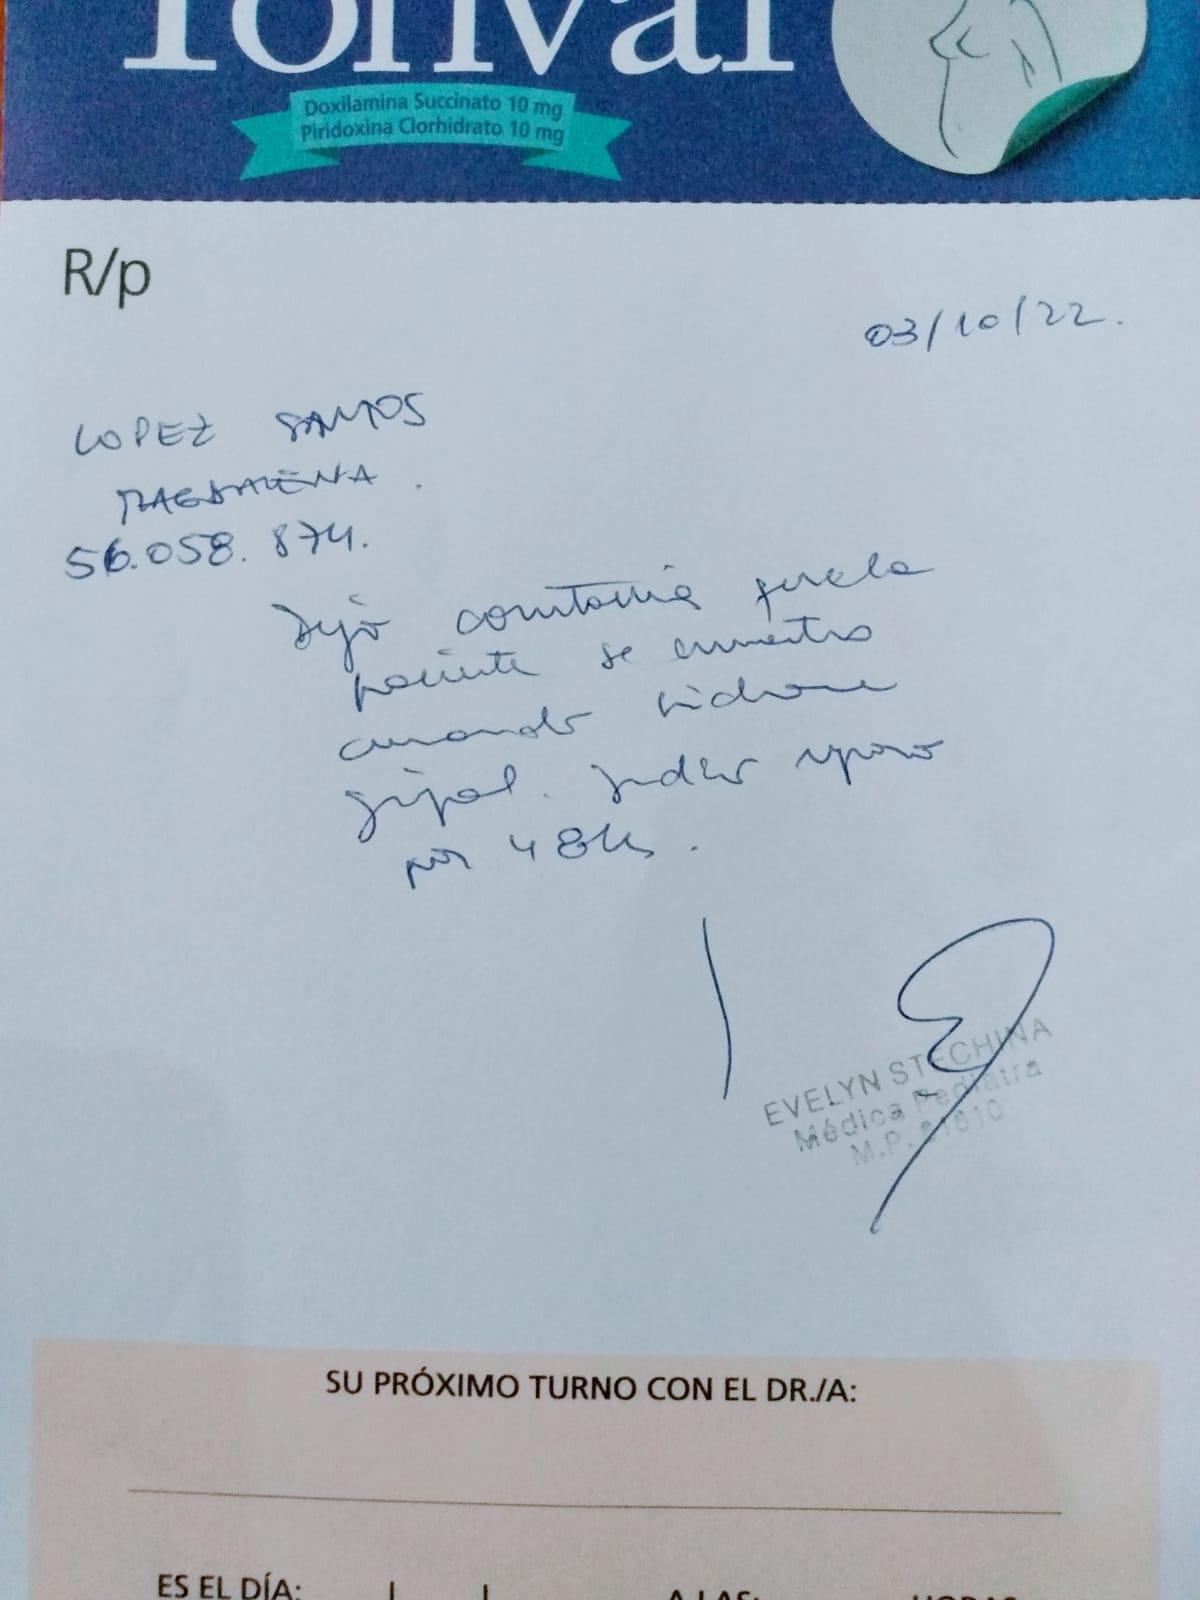 Torival
Doxilamina Succinato 10 mg
Piridoxina Clorhidrato 10 mg
R/p
03/10/22.
LOPEZ SANTOS
MAGDALENA.
56.058.874.
Dejo constancia que la
paciente se encuentra
cursando síndrome
gripal. Indico reposo
por 48hs.
EVELYN STECHINA
Médica Pediatra
M.P. 21610
SU PRÓXIMO TURNO CON EL DR./A:
ES EL DÍA: / / A LAS: HORAS